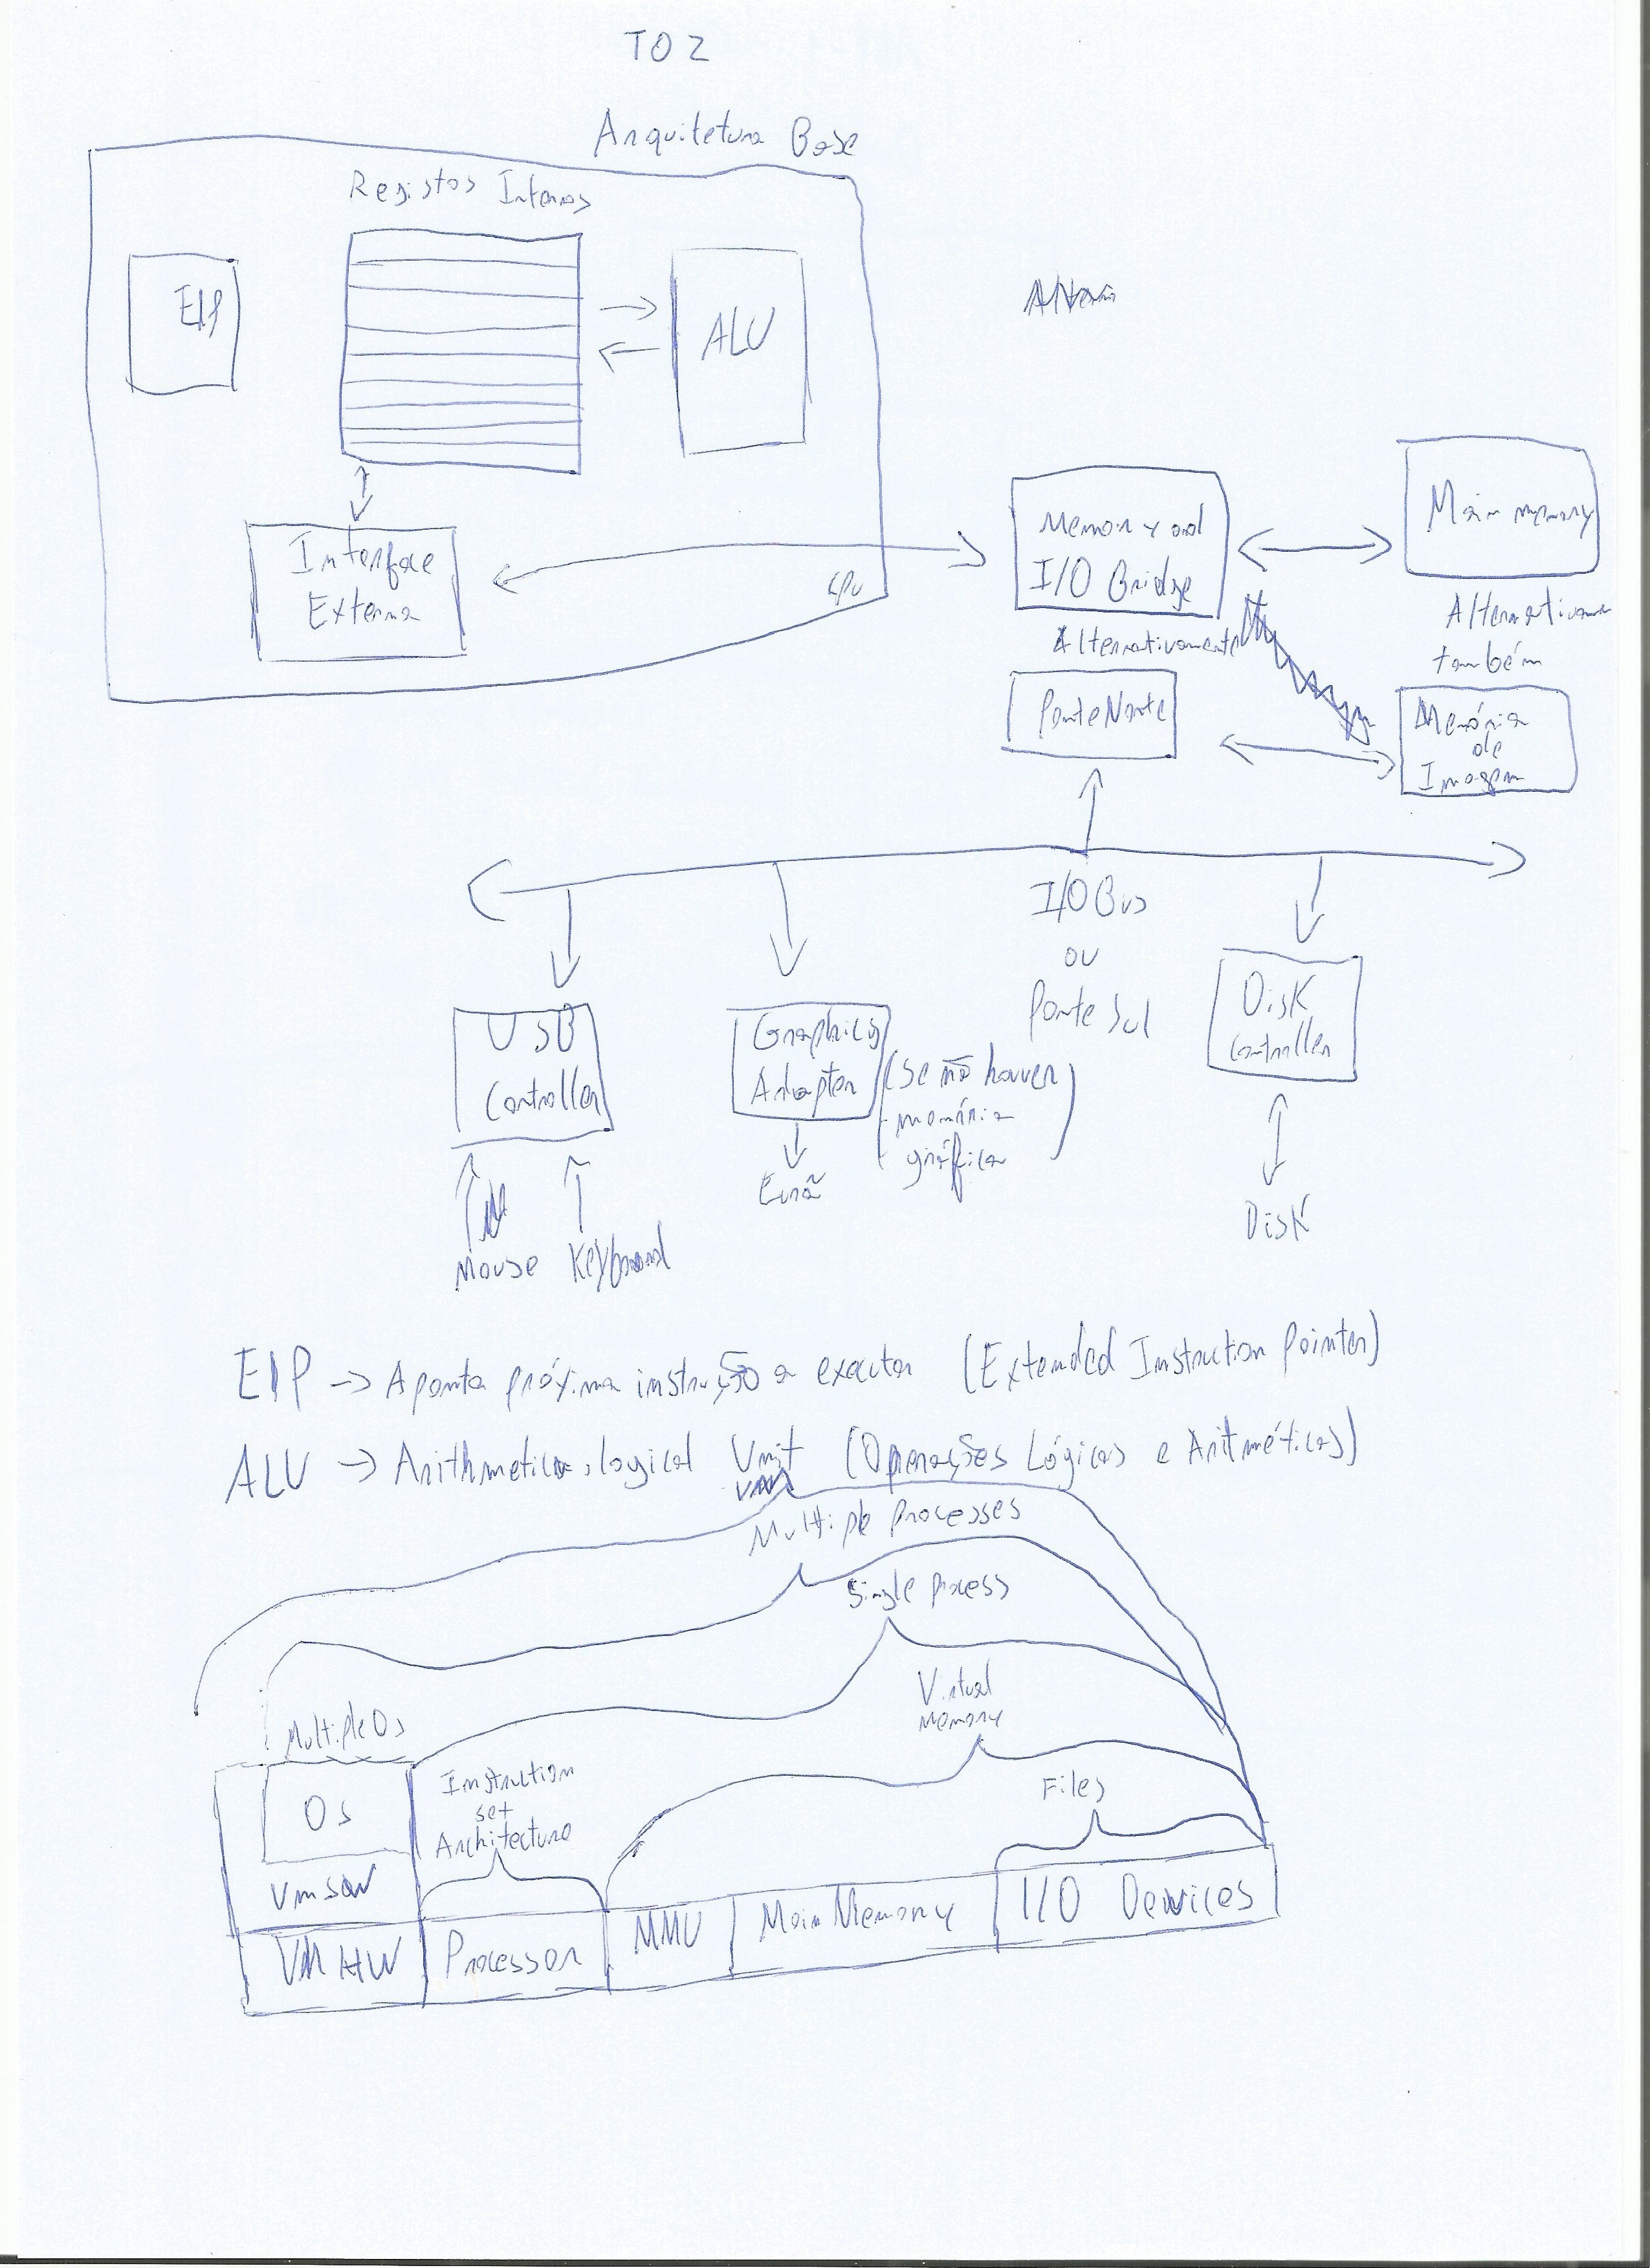 T02
Arquitetura Base
Registos Internos
EIP
ALU
Interface
Externa
CPU
Memory and
I/O Bridge
Main memory
Alternativamente
Ponte Norte
também
Memória
de
Imagem
I/O Bus
ou
Ponte Sul
USB
Controller
Graphics
Adapter
(Se não houver
memória
gráfica)
Disk
Controller
Mouse Keyboard
Disk
EIP -> Aponta próxima instrução a executar (Extended Instruction Pointer)
ALU -> Arithmetica, logical Unit (Operações Lógicas e Aritméticas)
Multiple Processes
Single process
Virtual
Memory
Multiple Os
Instruction
set
Architecture
Files
Os
VmSW
VM HW
Processor
MMU
Main Memory
I/O Devices